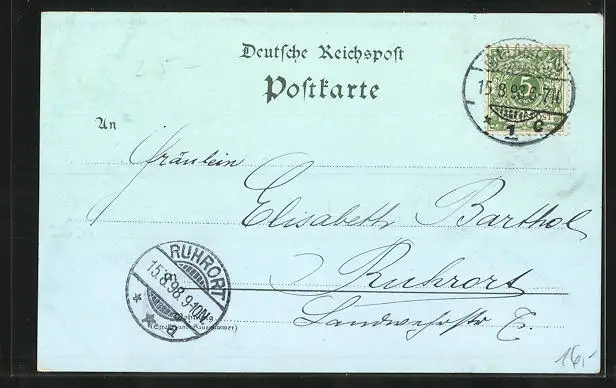 25.-
Deutsche Reichspost
Postkarte
5
15.8.98. 6-7N
1 c
An
Fräulein
Elisabeth Barthol
RUHRORT
15.8.98. 9-10N
a
Ruhrort
Wohnung
(Straße und Hausnummer)
Landwehrstr
16,-